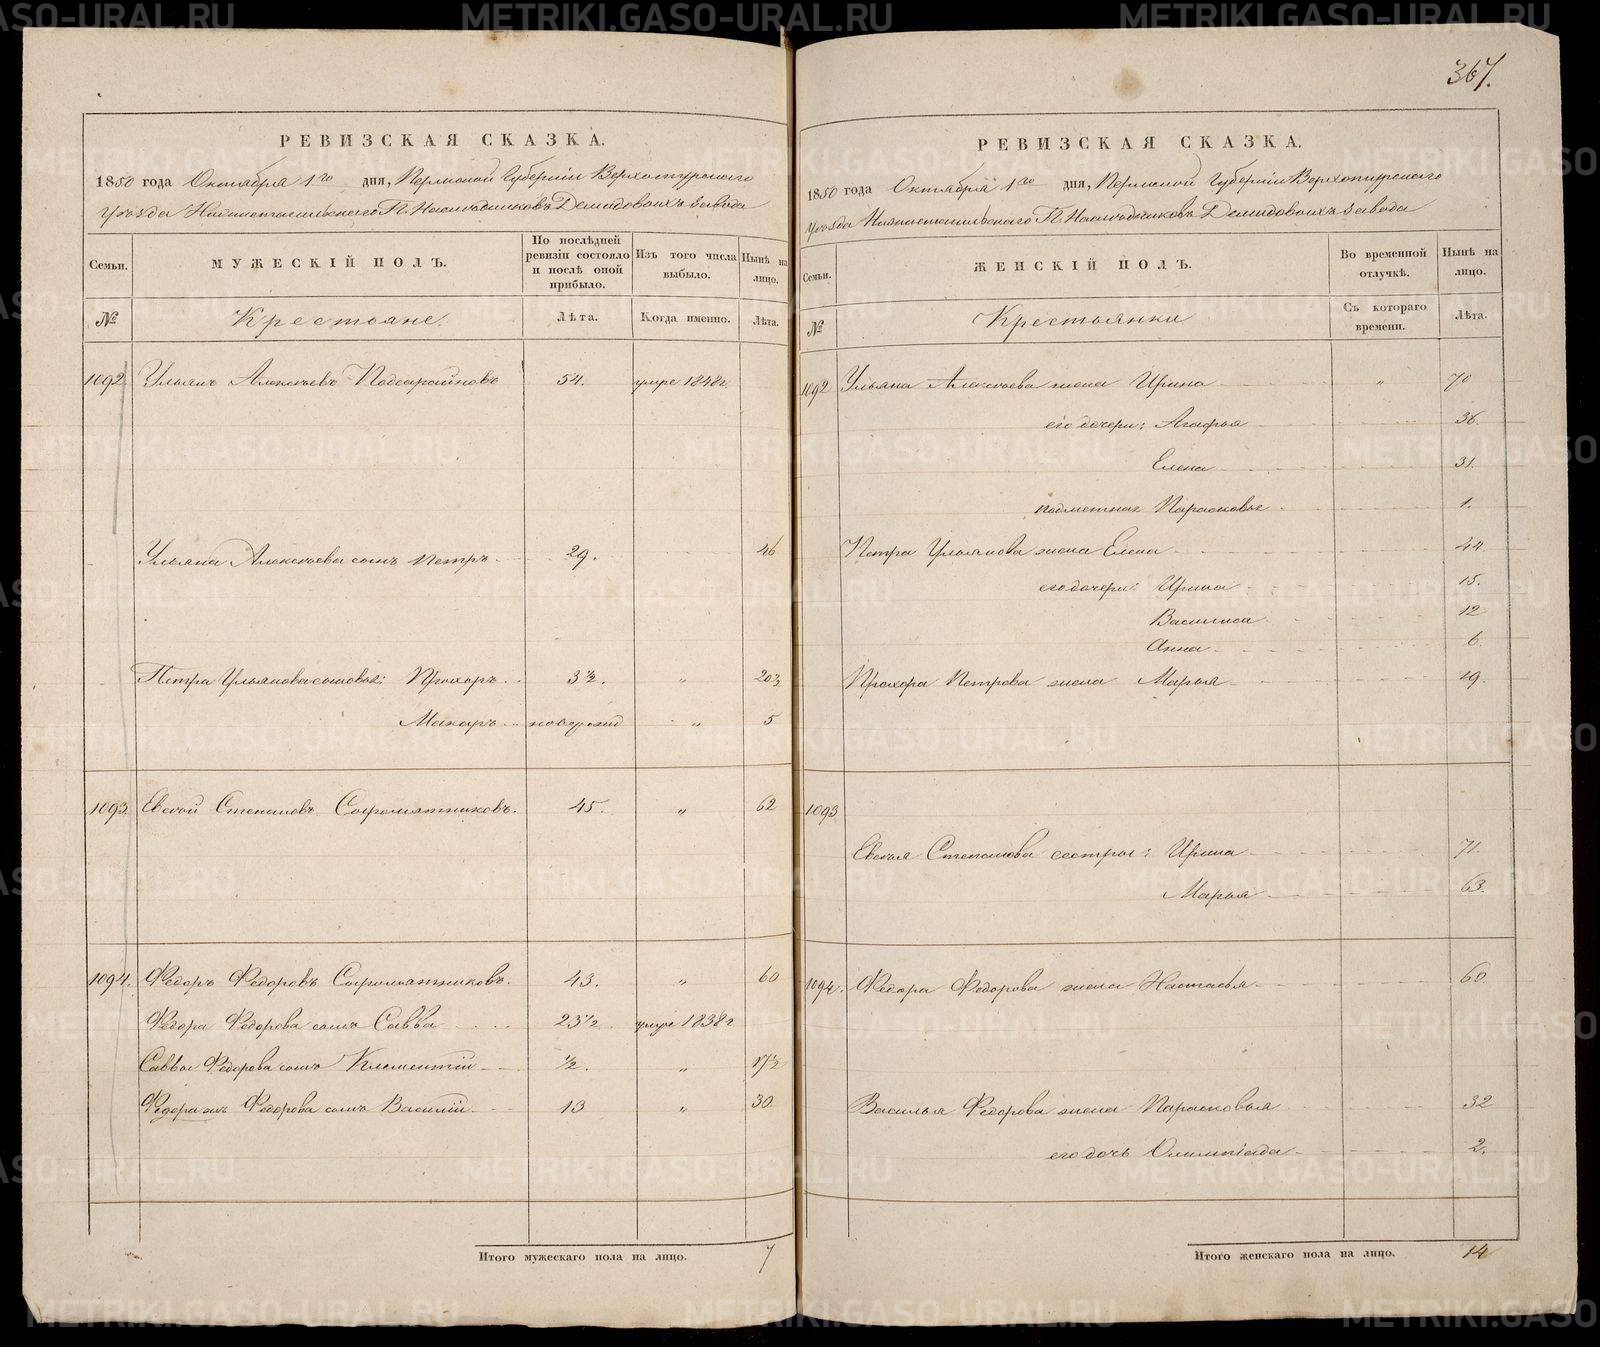 367.
РЕВИЗСКАЯ СКАЗКА.
1850 года Октября 1го дня, Пермской Губернiи Верхотурскаго
Уѣзда Нижнетагильскаго Г.г. Наслѣдниковъ Демидовыхъ завода
Семьи.
МУЖЕСКIЙ ПОЛЪ.
По послѣдней ревизiи состояло и послѣ оной прибыло.
Изъ того числа выбыло.
Нынѣ на лицо.
№ Крестьяне. Лѣта. Когда именно. Лѣта.
1092. Ульянъ Алексѣевъ Подсарайновъ 54. умре 1848г.
Ульяна Алексѣева сынъ Петръ 29. 46
Петра Ульянова сыновья: Прохоръ 3½. „ 20½
Макаръ новорожд „ 5
1093. Евсѣй Степановъ Сыромятниковъ. 45. „ 62
1094. Ѳедоръ Ѳедоровъ Сыромятниковъ. 43. „ 60
Ѳедора Ѳедорова сынъ Савва 23½ умре 1838г
Саввы Ѳедорова сынъ Климентiй ½. „ 17½
Ѳедора жъ Ѳедорова сынъ Василiй 13 „ 30
Итого мужескаго пола на лицо. 7
РЕВИЗСКАЯ СКАЗКА.
1850 года Октября 1го дня, Пермской Губернiи Верхотурскаго
Уѣзда Нижнетагильскаго Г.г. Наслѣдниковъ Демидовыхъ завода
Семьи.
ЖЕНСКIЙ ПОЛЪ.
Во временной отлучкѣ.
Нынѣ на лицо.
№ Крестьянки Съ котораго времени. Лѣта.
1092 Ульяна Алексѣева жена Ирина „ 70
его дочери: Агафья 36
Елена 31.
подметная Парасковья 1.
Петра Ульянова жена Елена 44.
его дочери: Ирина 15.
Василиса 12
Анна 6
Прохора Петрова жена Марья 19.
1093
Евсѣя Степанова сестры: Ирина 71.
Марья 63.
1094. Ѳедора Ѳедорова жена Настасья 60.
Василья Ѳедорова жена Парасковья 32
его дочь Олимпiада 2.
Итого женскаго пола на лицо. 14
METRIKI.GASO-URAL.RU